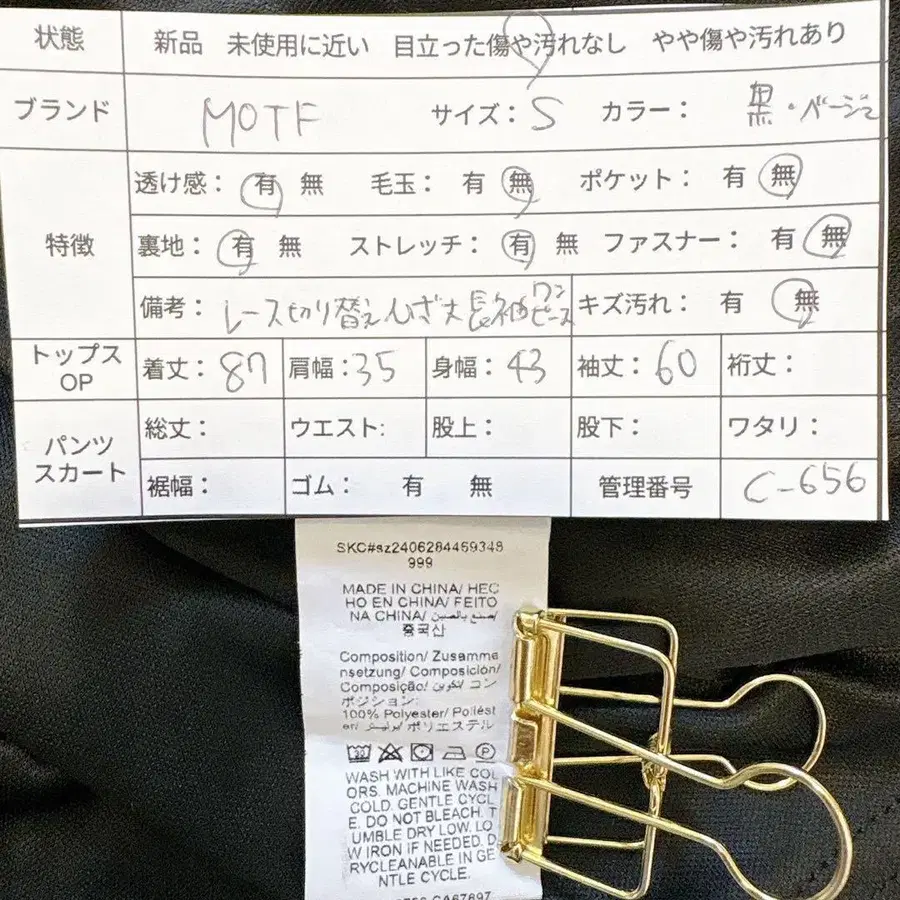 状態 新品 未使用に近い 目立った傷や汚れなし やや傷や汚れあり
ブランド MOTF サイズ: S カラー: 黒・ベージュ
特徴
透け感: 有 無 毛玉: 有 無 ポケット: 有 無
裏地: 有 無 ストレッチ: 有 無 ファスナー: 有 無
備考: レース切り替えひざ丈長袖ワンピース キズ汚れ: 有 無
トップス OP 着丈: 87 肩幅: 35 身幅: 43 袖丈: 60 裄丈:
パンツ スカート 総丈: ウエスト: 股上: 股下: ワタリ:
裾幅: ゴム: 有 無 管理番号 C-656
SKC#sz2406284469348
999
MADE IN CHINA/ HEC
HO EN CHINA/ FEITO
NA CHINA/ صنع بالصين/
중국산
Composition/ Zusamme
nsetzung/ Composición/
Composição/ التكوين/ コン
ポジション:
100% Polyester/ Poliést
er/ بوليستر/ ポリエステル
30 P
WASH WITH LIKE COL
ORS. MACHINE WASH
COLD. GENTLE CYCL
E. DO NOT BLEACH. T
UMBLE DRY LOW. LO
W IRON IF NEEDED. D
RYCLEANABLE IN GE
NTLE CYCLE.